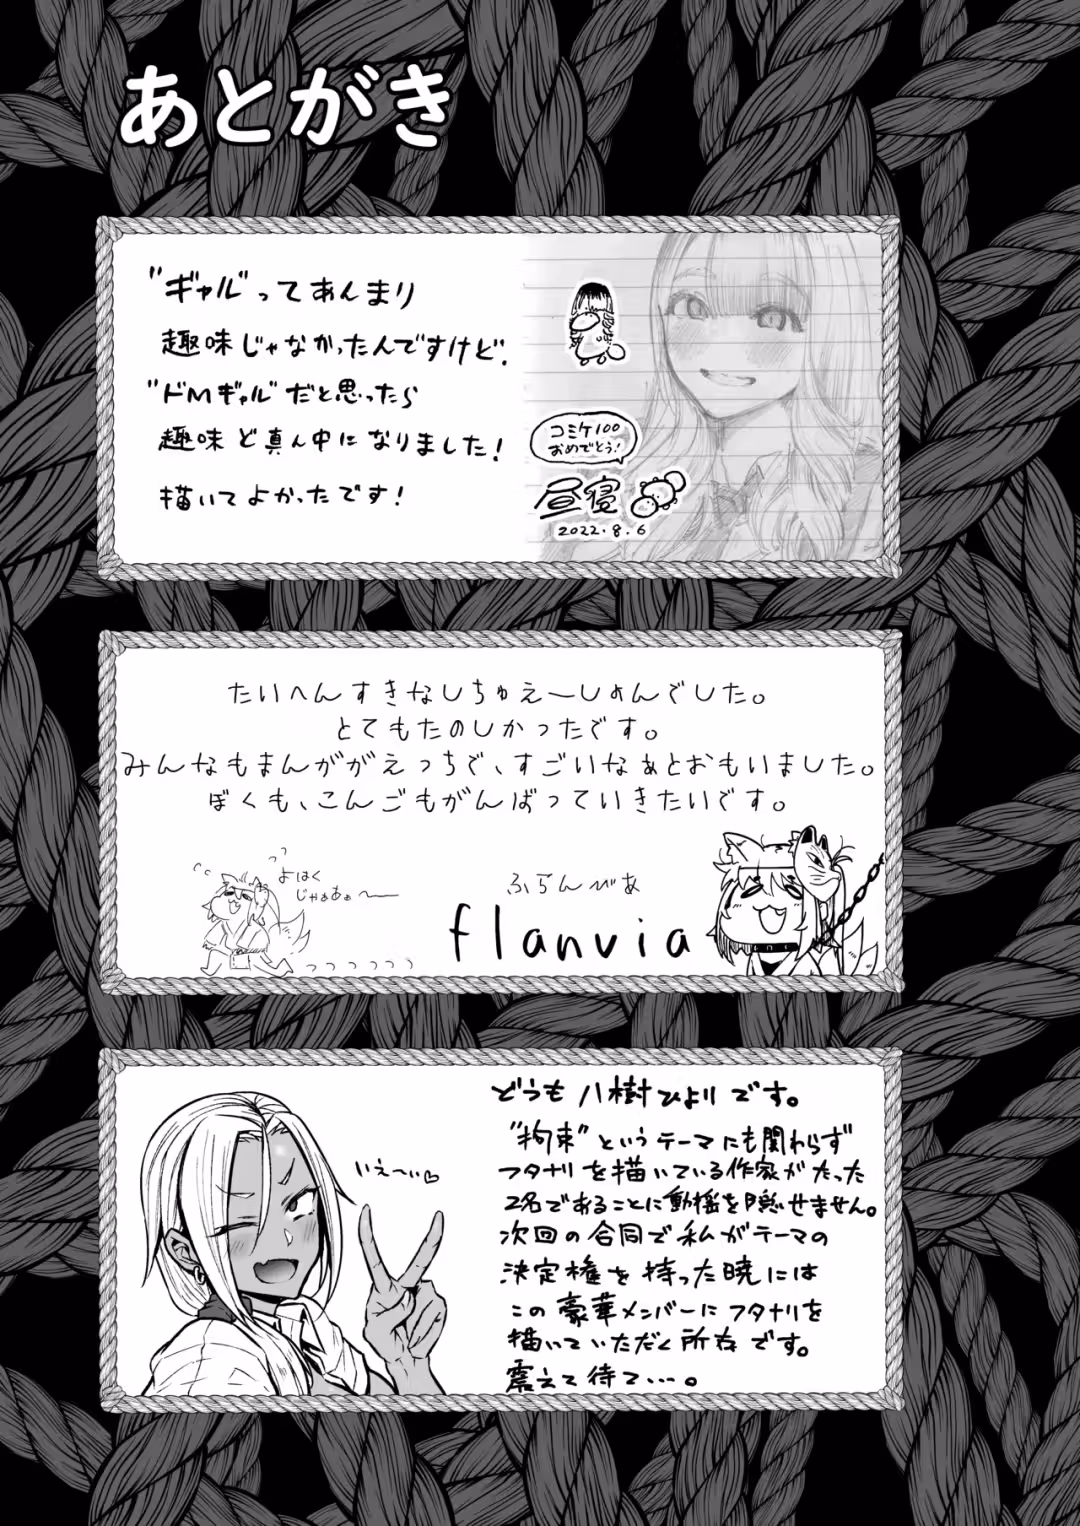 あとがき
"ギャル"ってあんまり
趣味じゃなかったんですけど、
"ドMギャル"だと思ったら
趣味ど真ん中になりました!
描いてよかったです!
コミケ100
おめでとう!
昼寝
2022.8.6
たいへんすきなしちゅえーしょんでした。
とてもたのしかったです。
みんなもまんががえっちで、すごいなぁとおもいました。
ぼくも、こんごもがんばっていきたいです。
よはく
じゃああぁ〜
ふらんびあ
flanvia
いえ〜い♡
どうも八樹ひよりです。
"拘束"というテーマにも関わらず
フタナリを描いている作家がたった
2名であることに動揺を隠せません。
次回の合同で私がテーマの
決定権を持った暁には
この豪華メンバーにフタナリを
描いていただく所存です。
震えて待て…。